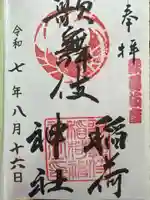 奉拝
歌舞伎
稲荷
神社
令和七年八月十六日